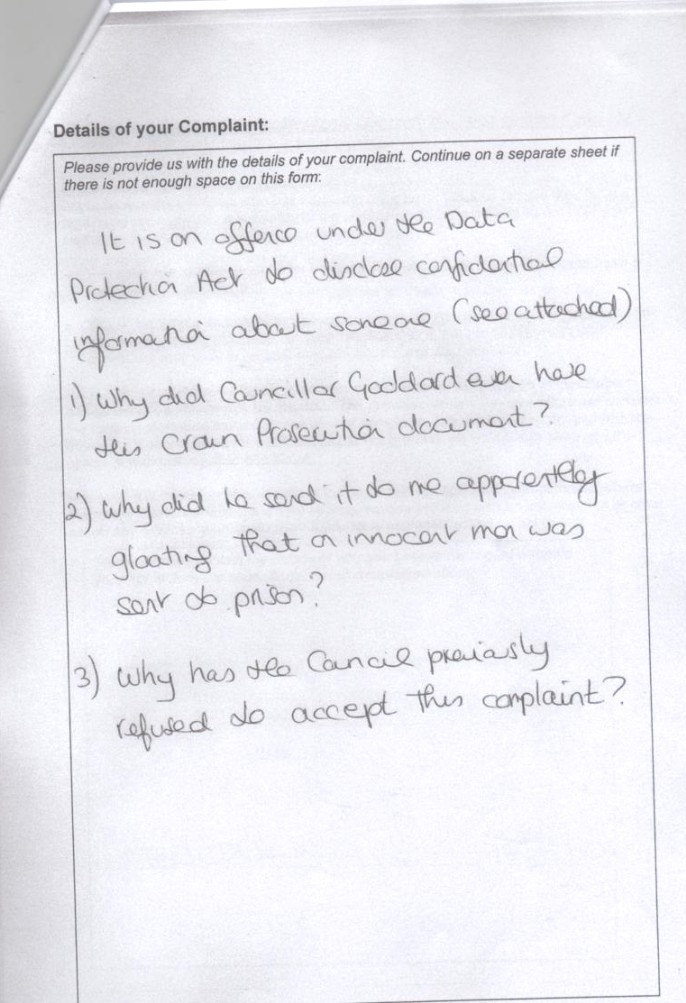 Details of your Complaint:
Please provide us with the details of your complaint. Continue on a separate sheet if
there is not enough space on this form.
It is an offence under the Data
Protection Act to disclose confidential
information about someone (see attached)
1) Why did Councillor Goddard even have
this Crown Prosecution document?
2) Why did he send it to me apparently
gloating that an innocent man was
sent to prison?
3) Why has the Council previously
refused to accept this complaint?